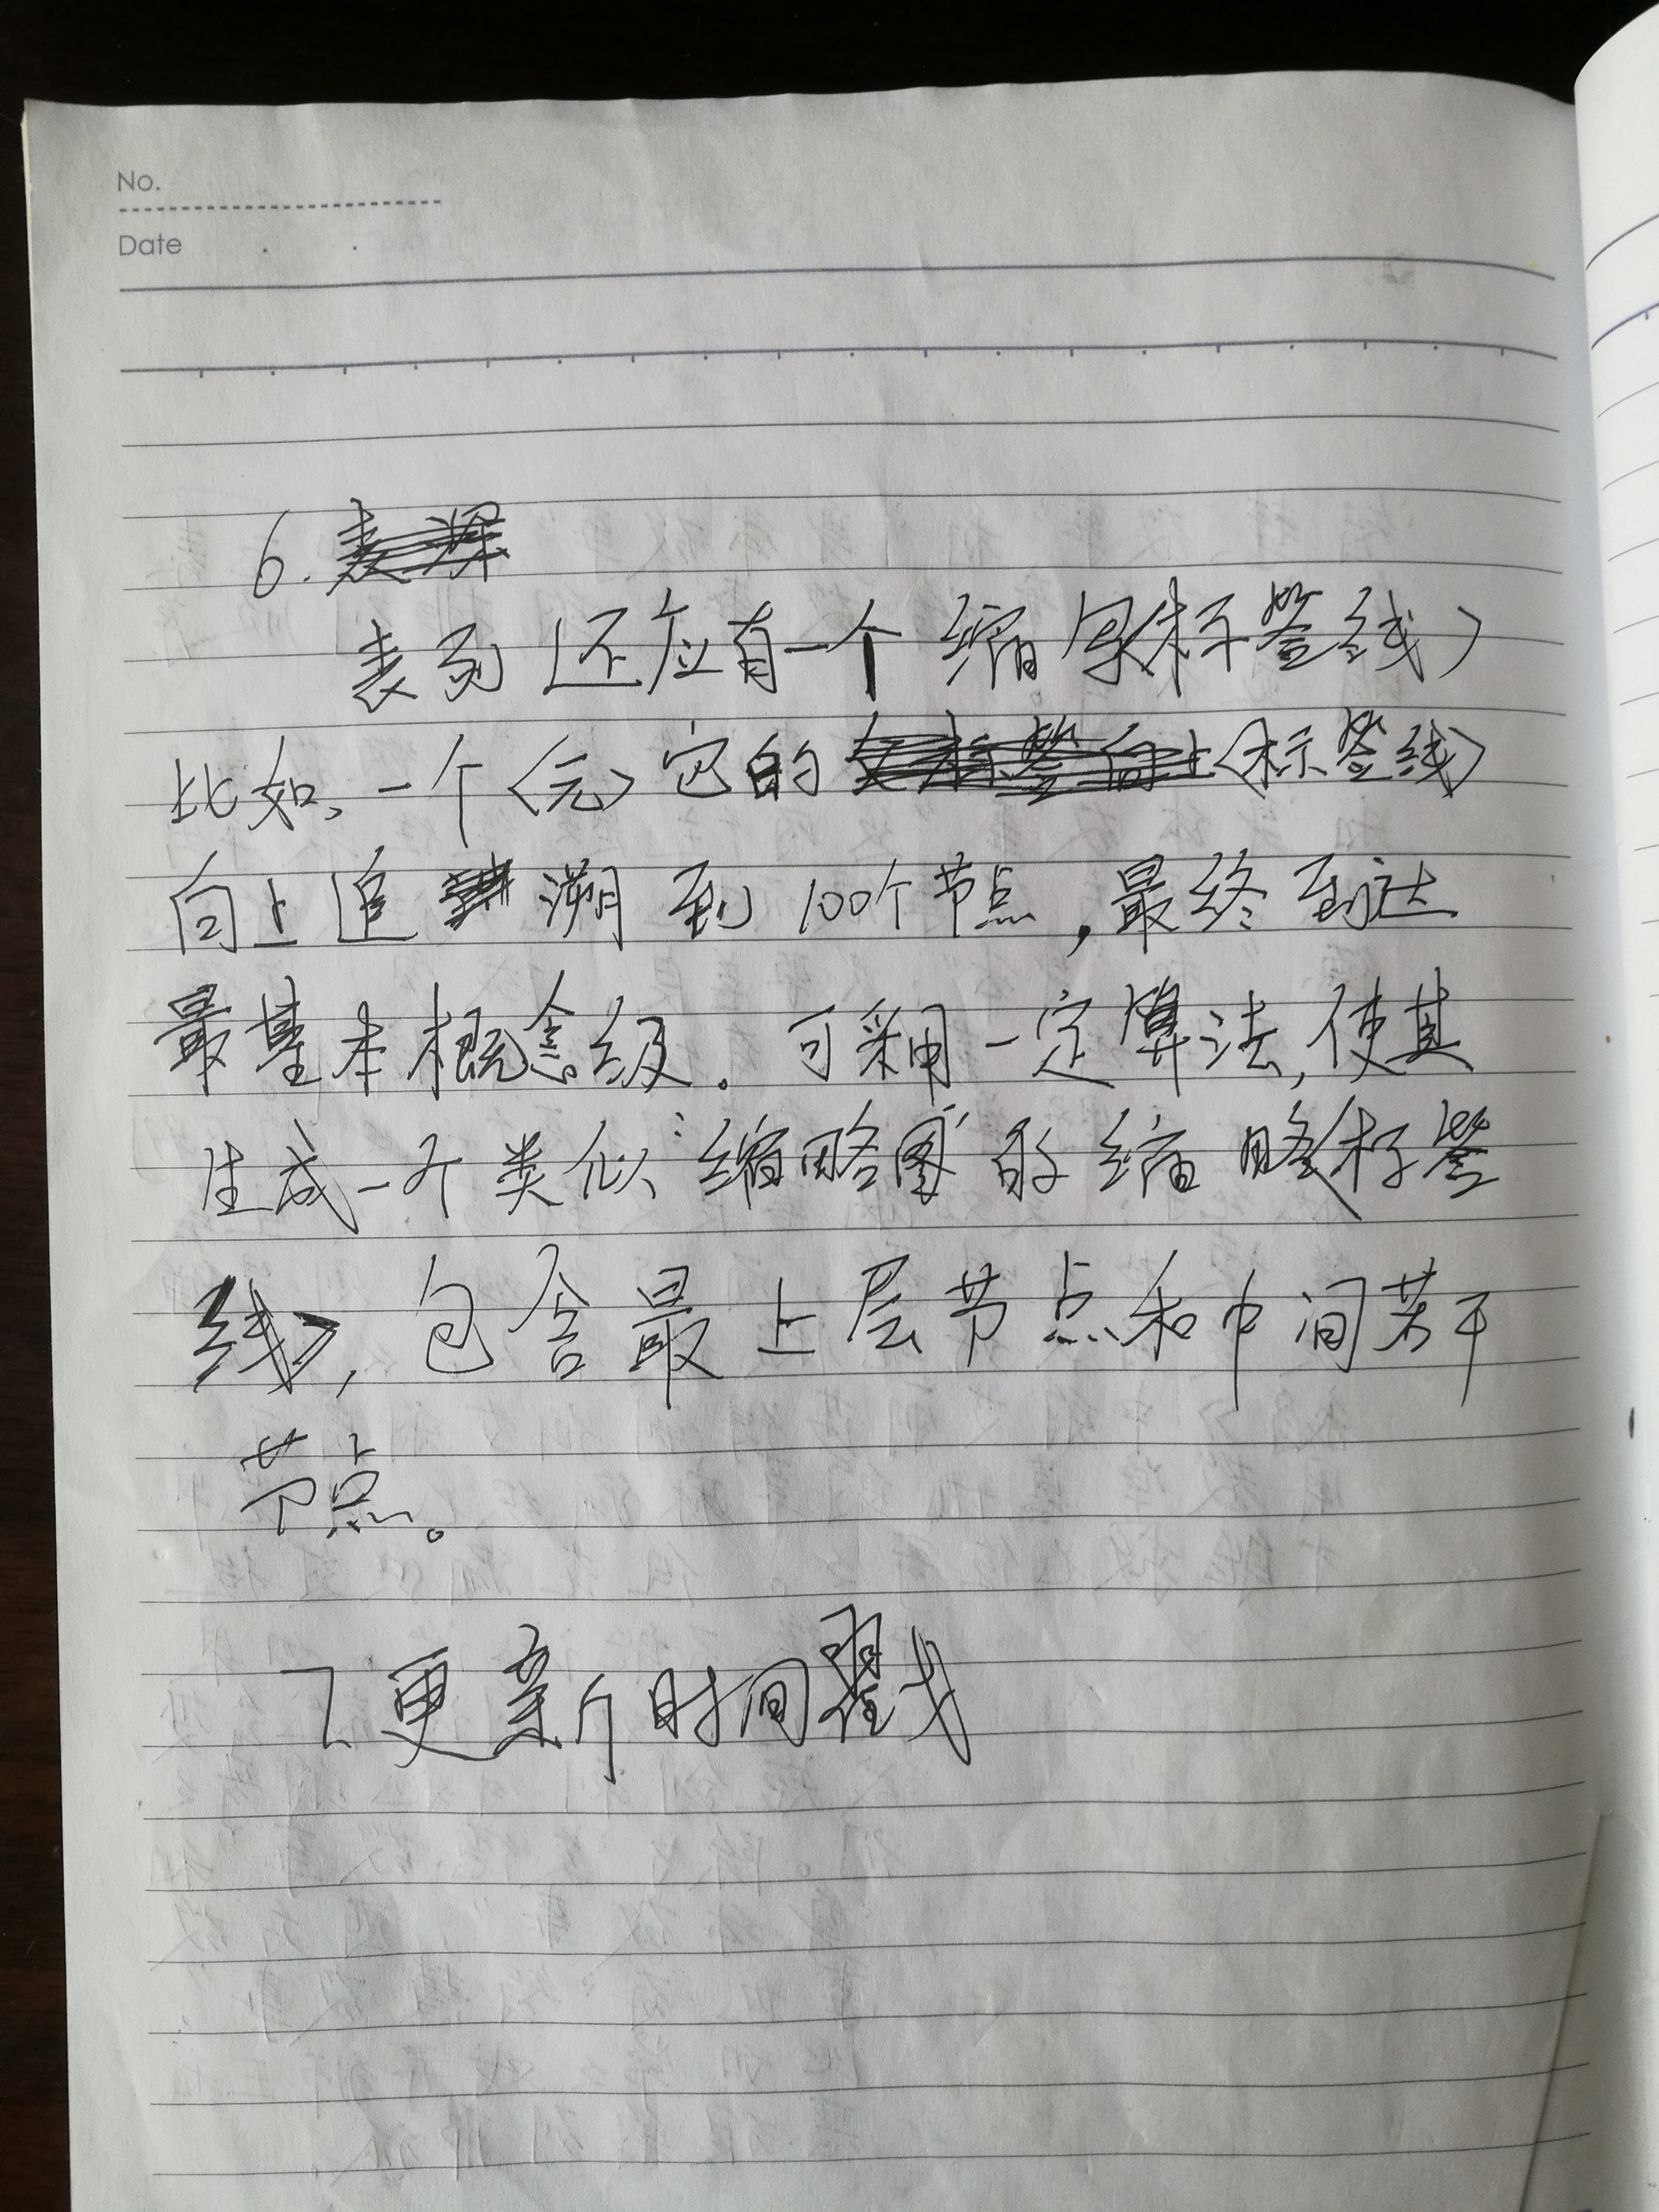 No.
Date
6.
表页还应有一个 缩写〈标签线〉
比如、一个〈元〉它的〈标签线〉
向上追溯到100个节点，最终到达
最基本概念级。可采用一定算法，使其
生成一个类似“缩略图”的缩略〈标签
线〉，包含最上层节点和中间若干
节点。
7 更新时间戳